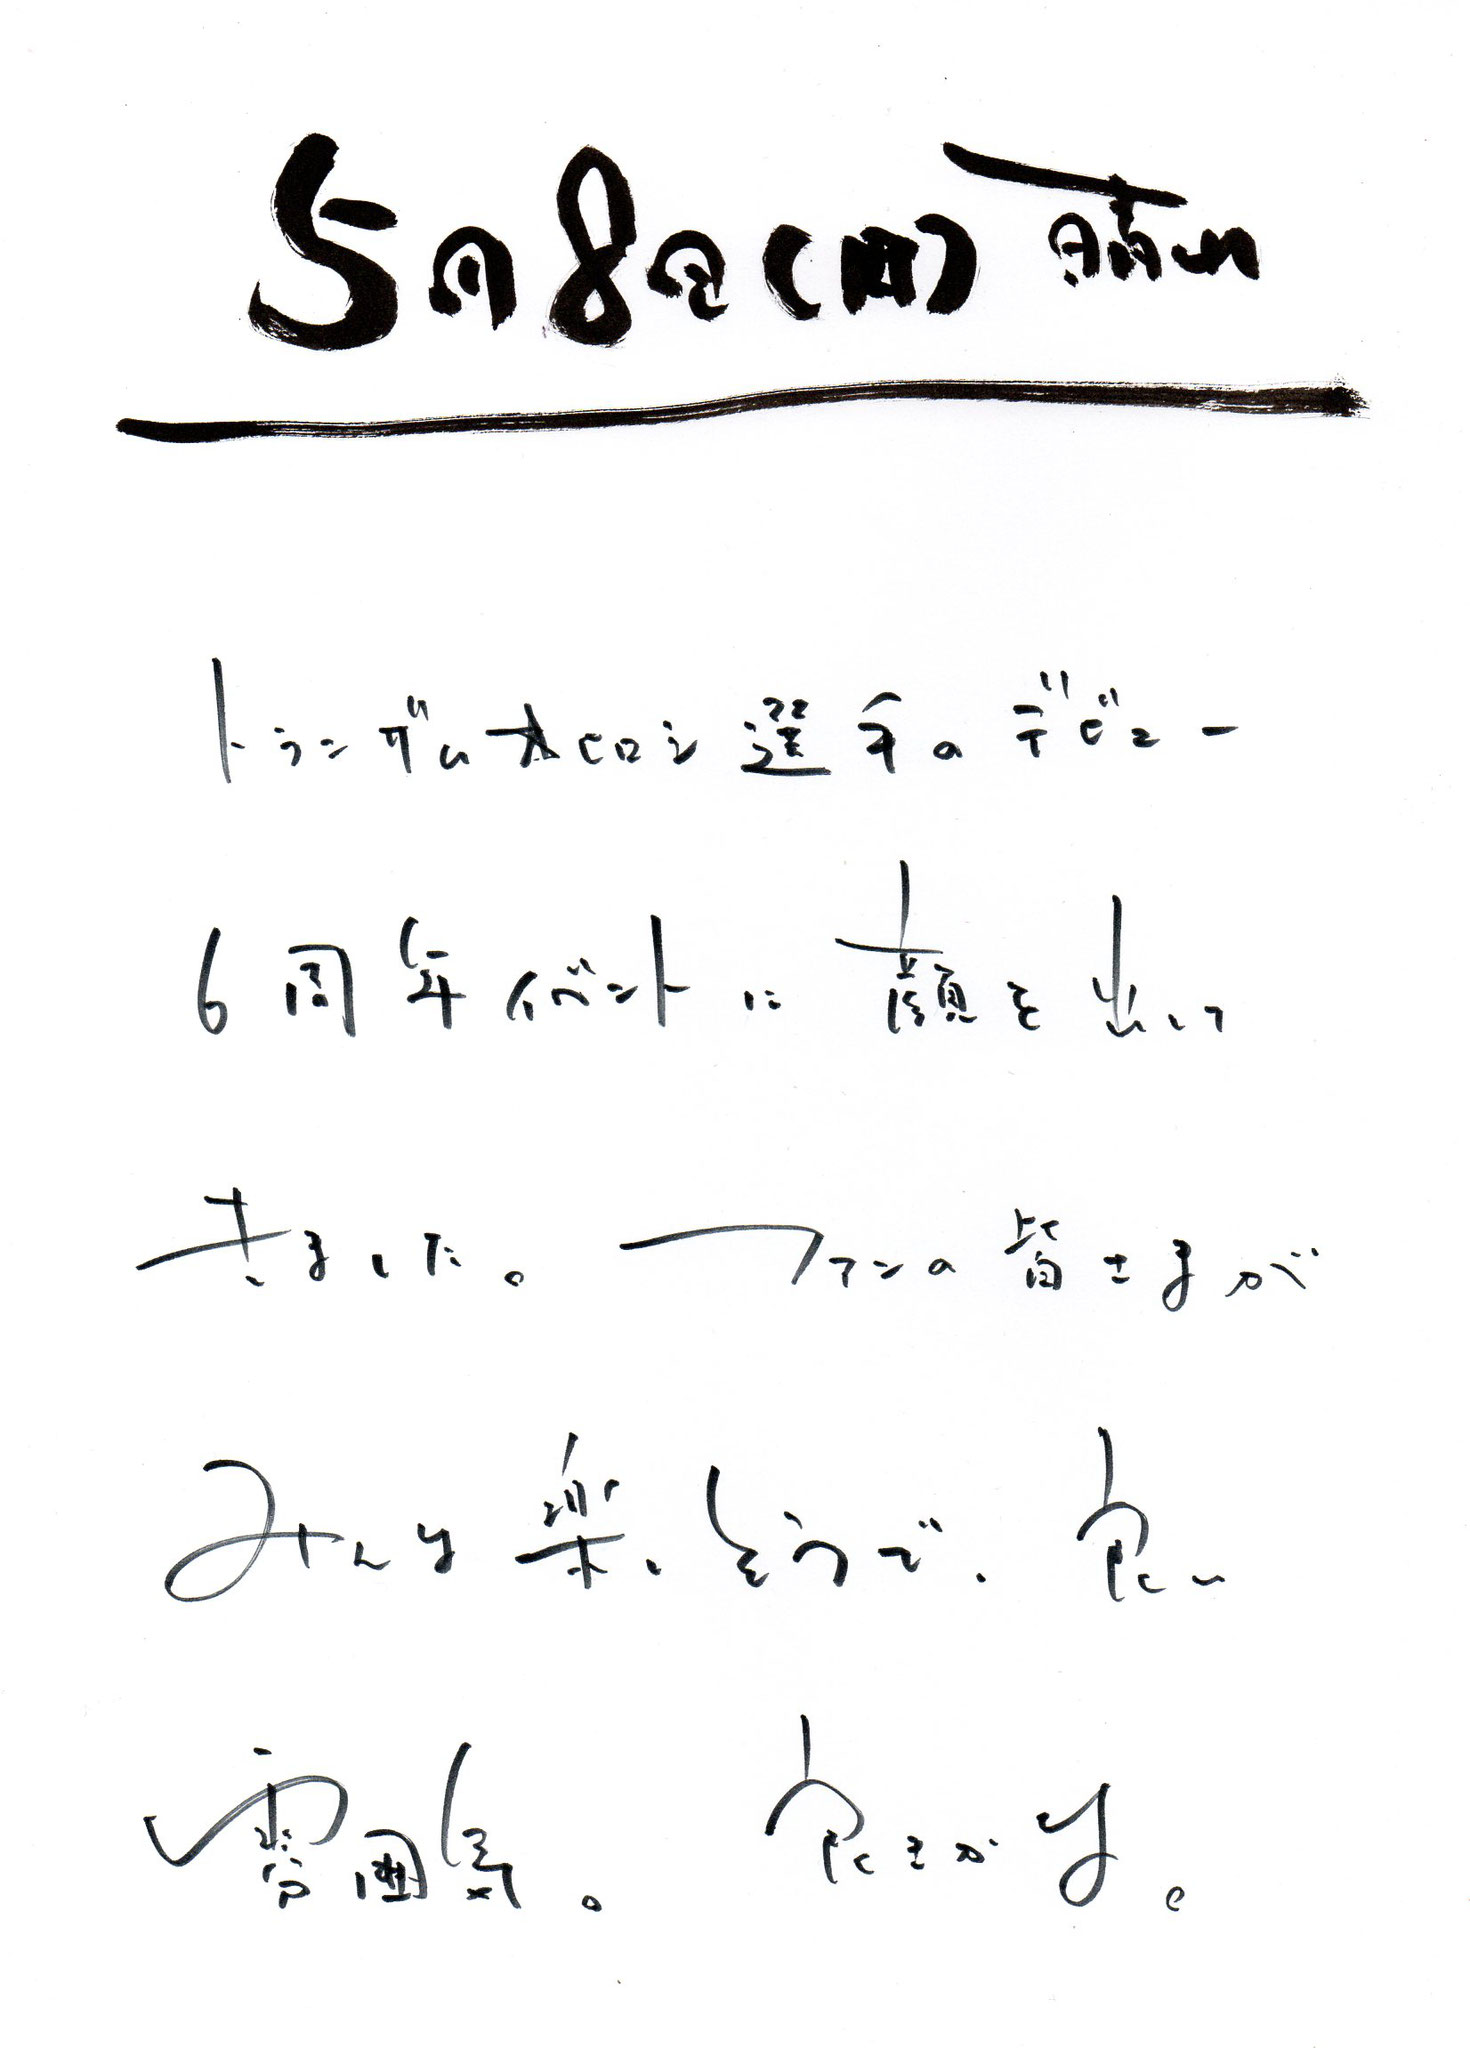 5月8日 晴れ
トランザム★ヒロシ選手のデビュー
6周年イベントに顔を出して
きました。ファンの皆さまが
みんな楽しそうで、良い
雰囲気。良きかな。